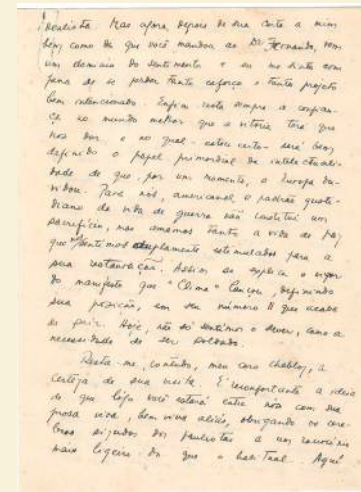 Mas agora, depois de sua carta a mim
bem como da que você mandou ao Dr Fernando, vem
um domínio do sentimento e eu me sinto com
pena de se perder tanto esforço e tanto projeto
bem intencionado. Enfim resta sempre a confian-
ça no mundo melhor que a vitória terá que
nos dar e no qual - estou certo - será bem
definido o papel primordial da intelectuali-
dade de que, por um momento, a Europa du-
vidou. Para nós, americanos, o padrão quoti-
diano da vida de guerra não constitui um
sacrifício, mas amamos tanto a vida de paz
que nos sentimos duplamente estimulados para a
sua restauração. Assim se explica o vigor
do manifesto que "Clima" lançou, definindo
sua posição, em seu número 11 que acaba
de sair. Hoje, não só sentimos o dever, como a
necessidade de ser soldado.
Resta-me, contudo, meu caro Chabloz, a
certeza de sua visita. É reconfortante a ideia
de que logo você estará entre nós com sua
prosa viva, bem viva aliás, obrigando os cere-
bros dos paulistas a um raciocínio
mais ligeiro do que o habitual. Aqui